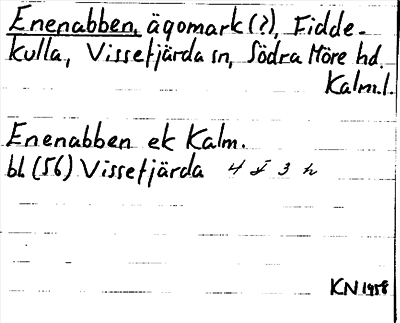 Enenabben, ägomark (?), Fidde-
kulla, Vissefjärda sn, Södra Möre hd.
Kalm.l.
Enenabben ek Kalm.
bl (56) Vissefjärda 4 I 3 h
KN 1958